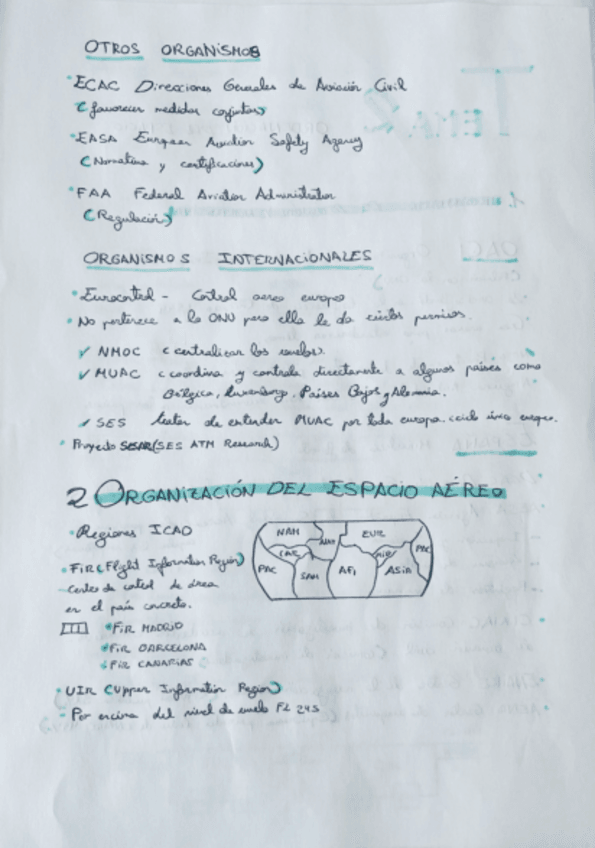 OTROS ORGANISMOS
• ECAC Direcciones Generales de Aviación Civil
(favorecer medidas conjuntas)
• EASA European Aviation Safety Agency
(Normativa y certificaciones)
• FAA Federal Aviation Administration
(Regulación)
ORGANISMOS INTERNACIONALES
• Eurocontrol - Control aereo europeo
• No pertenece a la ONU pero ella le da ciertos permisos.
✓ NMOC (centralizar los vuelos)
✓ MUAC (coordina y controla directamente a algunos países como
Bélgica, Luxemburgo, Países Bajos y Alemania.
✓ SES tratar de extender MUAC por toda europa. cielo único europeo.
• Proyecto SESAR (SES ATM Research)
2 ORGANIZACIÓN DEL ESPACIO AÉREO
• Regiones ICAO
NAM NAT EUR
CAR MID PAC
PAC SAM AFI ASIA
• FIR (Flight Information Region)
- Centro de control de área
en el país concreto.
• FIR MADRID
• FIR BARCELONA
• FIR CANARIAS
• UIR (Upper Information Region)
- Por encima del nivel de vuelo FL 245